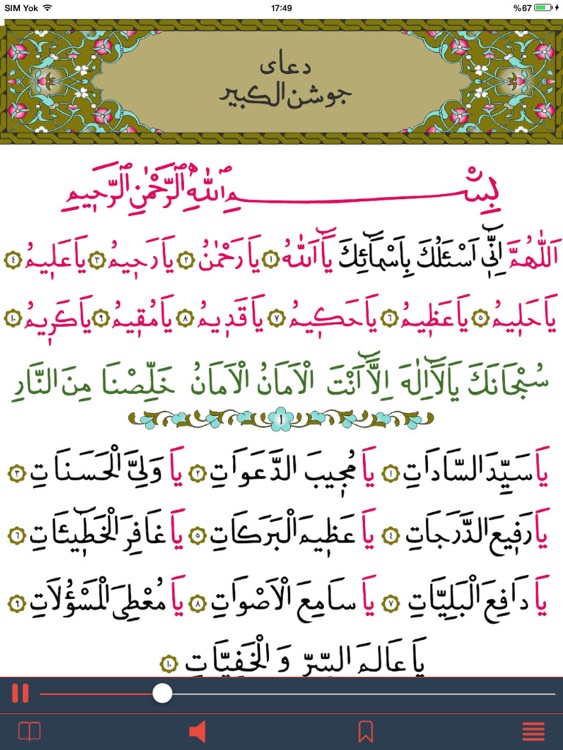 SIM Yok 17:49 %67
دعاى
جوشن الكبير
بِسْمِ اللّٰهِ الرَّحْمٰنِ الرَّحِيمِ
اَللّٰهُمَّ اِنِّى اَسْئَلُكَ بِاَسْمَٓائِكَ يَٓا اَللّٰهُ ١ يَا رَحْمٰنُ ٢ يَا رَحِيمُ ٣ يَا عَلِيمُ ٤
يَا حَلِيمُ ٥ يَا عَظِيمُ ٦ يَا حَكِيمُ ٧ يَا قَدِيمُ ٨ يَا مُقِيمُ ٩ يَا كَرِيمُ ١٠
سُبْحَانَكَ يَا لَٓا اِلٰهَ اِلَّٓا اَنْتَ الْاَمَانُ الْاَمَانُ خَلِّصْنَا مِنَ النَّارِ
١
يَا سَيِّدَ السَّادَاتِ ١ يَا مُجِيبَ الدَّعَوَاتِ ٢ يَا وَلِىَّ الْحَسَنَاتِ ٣
يَا رَفِيعَ الدَّرَجَاتِ ٤ يَا عَظِيمَ الْبَرَكَاتِ ٥ يَا غَافِرَ الْخَطِٓيئَاتِ ٦
يَا دَافِعَ الْبَلِيَّاتِ ٧ يَا سَامِعَ الْاَصْوَاتِ ٨ يَا مُعْطِىَ الْمَسْؤُلَاتِ ٩
يَا عَالِمَ السِّرِّ وَ الْخَفِيَّاتِ ١٠